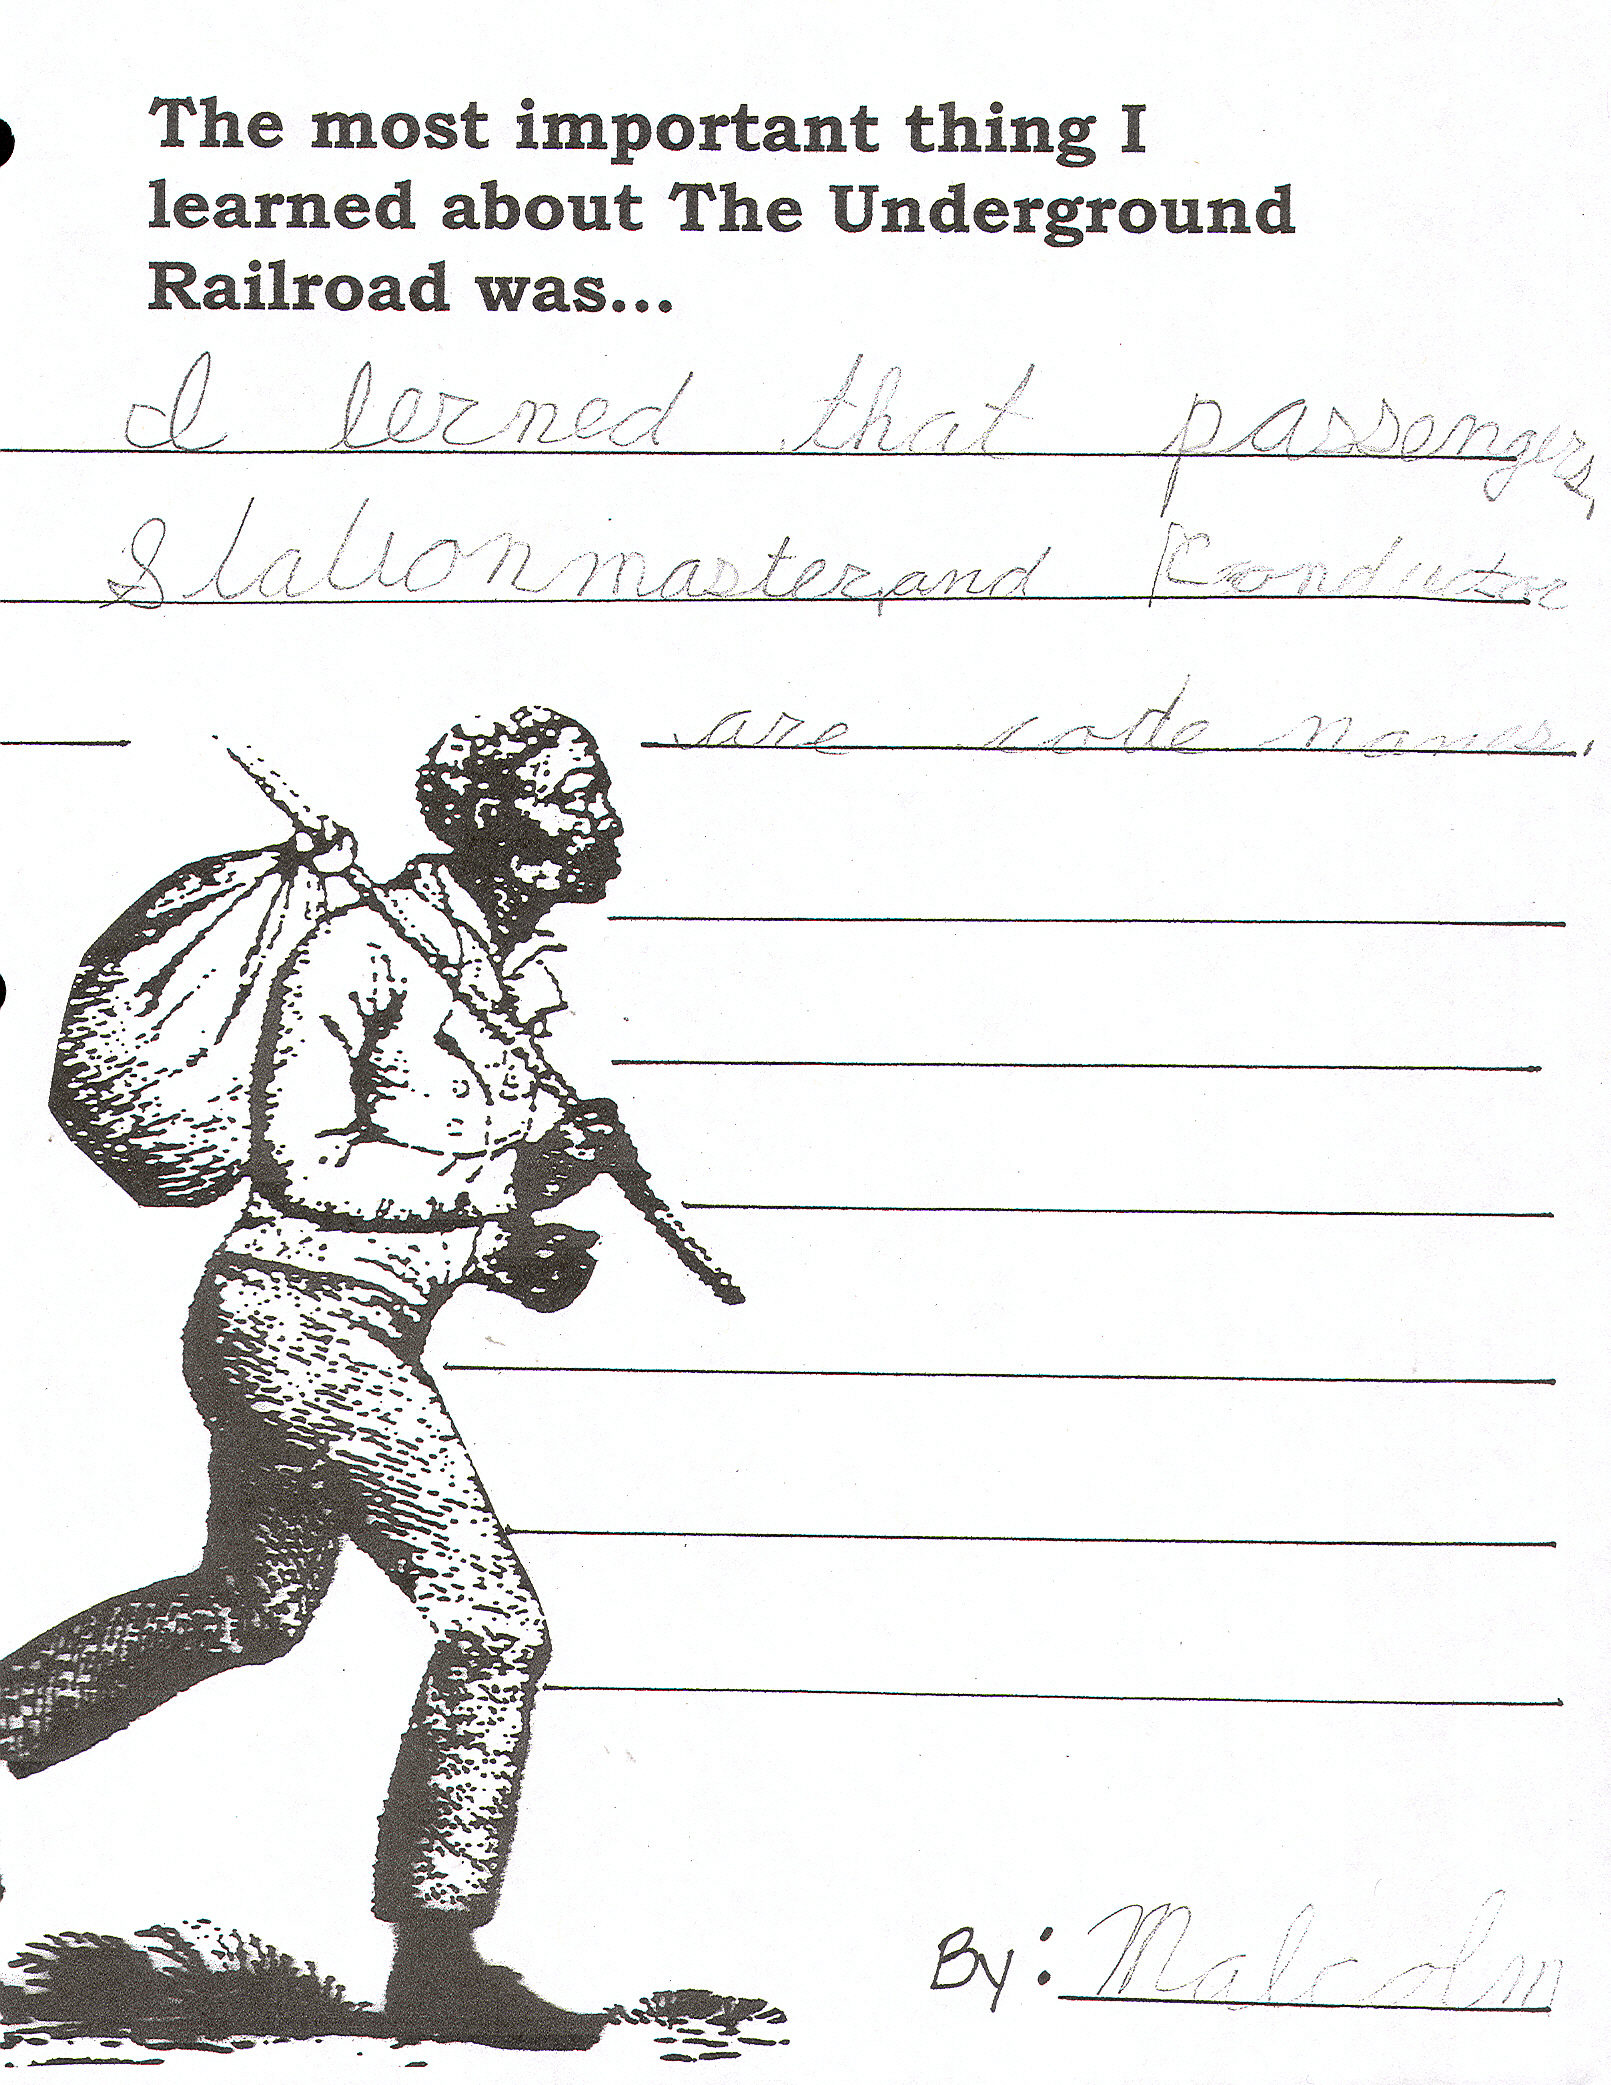 The most important thing I
learned about The Underground
Railroad was...
I lerned that passengers,
Stationmaster, and Conductor
are code names.
By: Malcolm